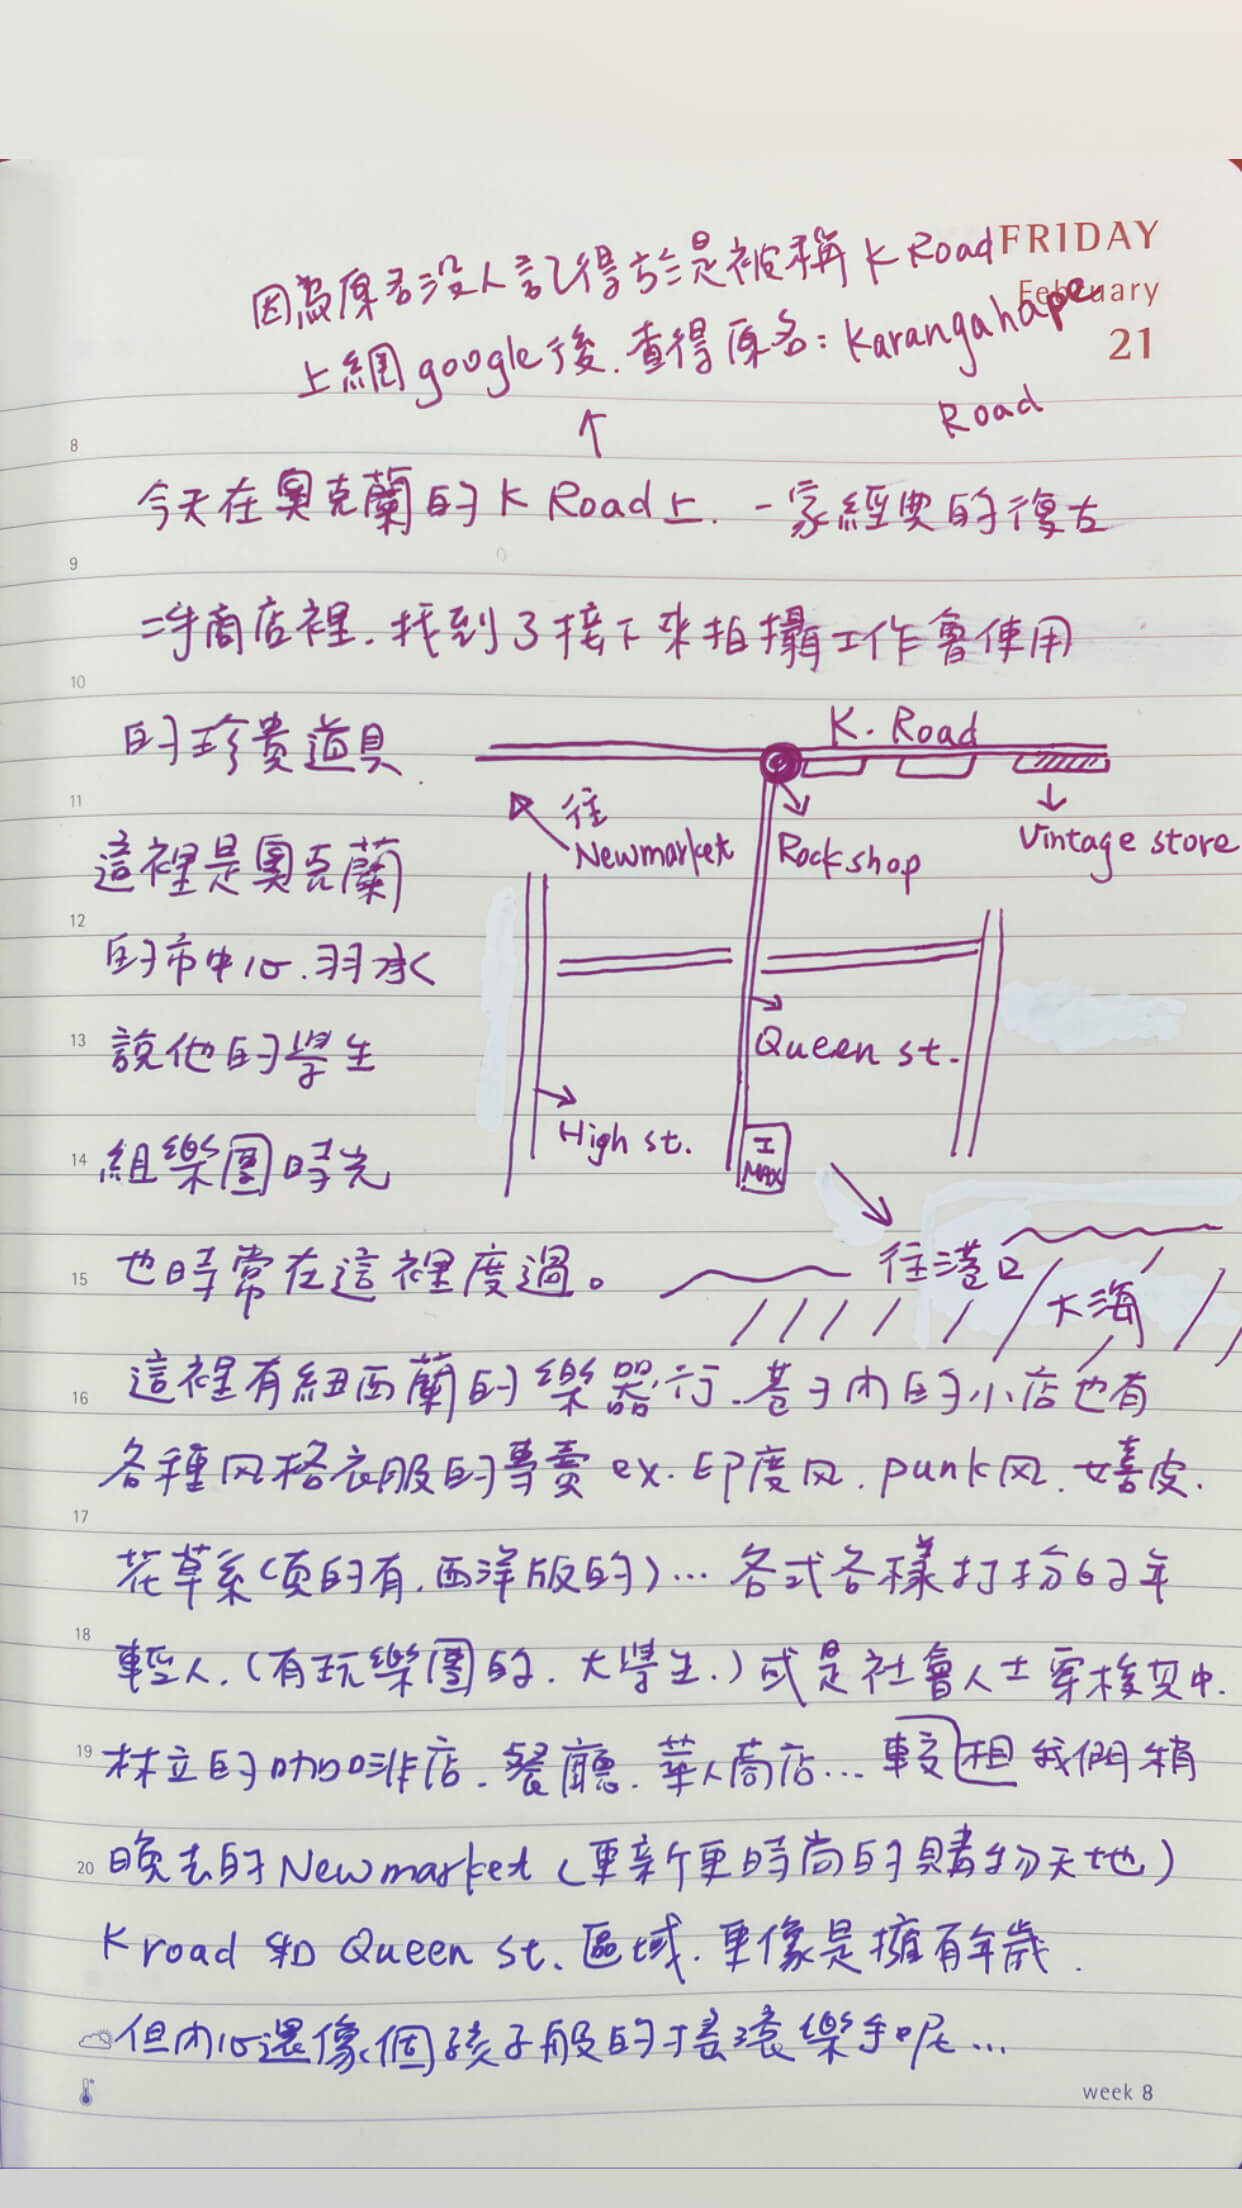 FRIDAY
February
21
因為原名沒人記得於是被稱 K Road
上網google後.查得原名：Karangahape
Road
↑
8
今天在奧克蘭的K Road上.一家經典的復古
9
二手商店裡.找到了接下來拍攝工作會使用
10
的珍貴道具.
K. Road
往
Newmarket
Rockshop
Vintage store
11
這裡是奧克蘭
12
的市中心.羽承
13
說他的學生
Queen st.
High st.
14
組樂團時光
I
MAX
往港口
大海
15
也時常在這裡度過。
16
這裡有紐西蘭的樂器行.巷子內的小店也有
各種风格衣服的專賣 ex.印度风.punk风.嬉皮.
17
花草系(真的有.西洋版的)…各式各樣打扮的年
18
輕人.(有玩樂團的.大學生.)或是社會人士穿梭其中.
19
林立的咖啡店.餐廳.華人商店…較相我們稍
20
晚去的Newmarket(更新更時尚的購物天地)
K road 和 Queen st.區域.更像是擁有年歲.
但內心還像個孩子般的搖滾樂手呢…
week 8